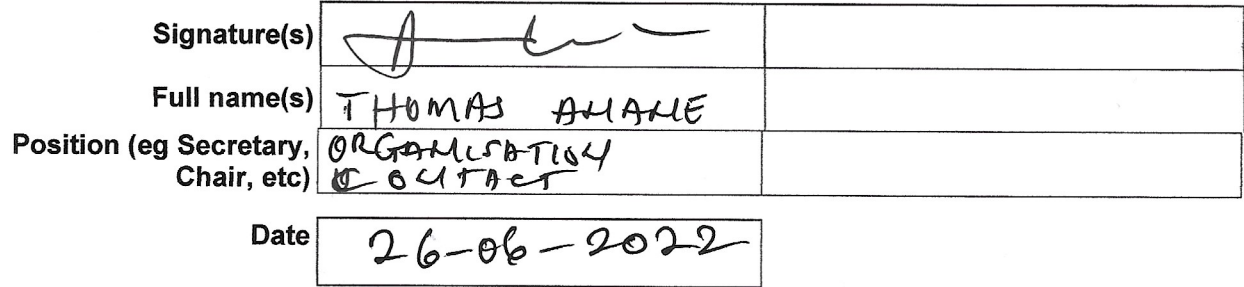 Signature(s)
Full name(s) THOMAS ANANE
Position (eg Secretary, ORGANISATION
Chair, etc) CONTACT
Date 26-06-2022